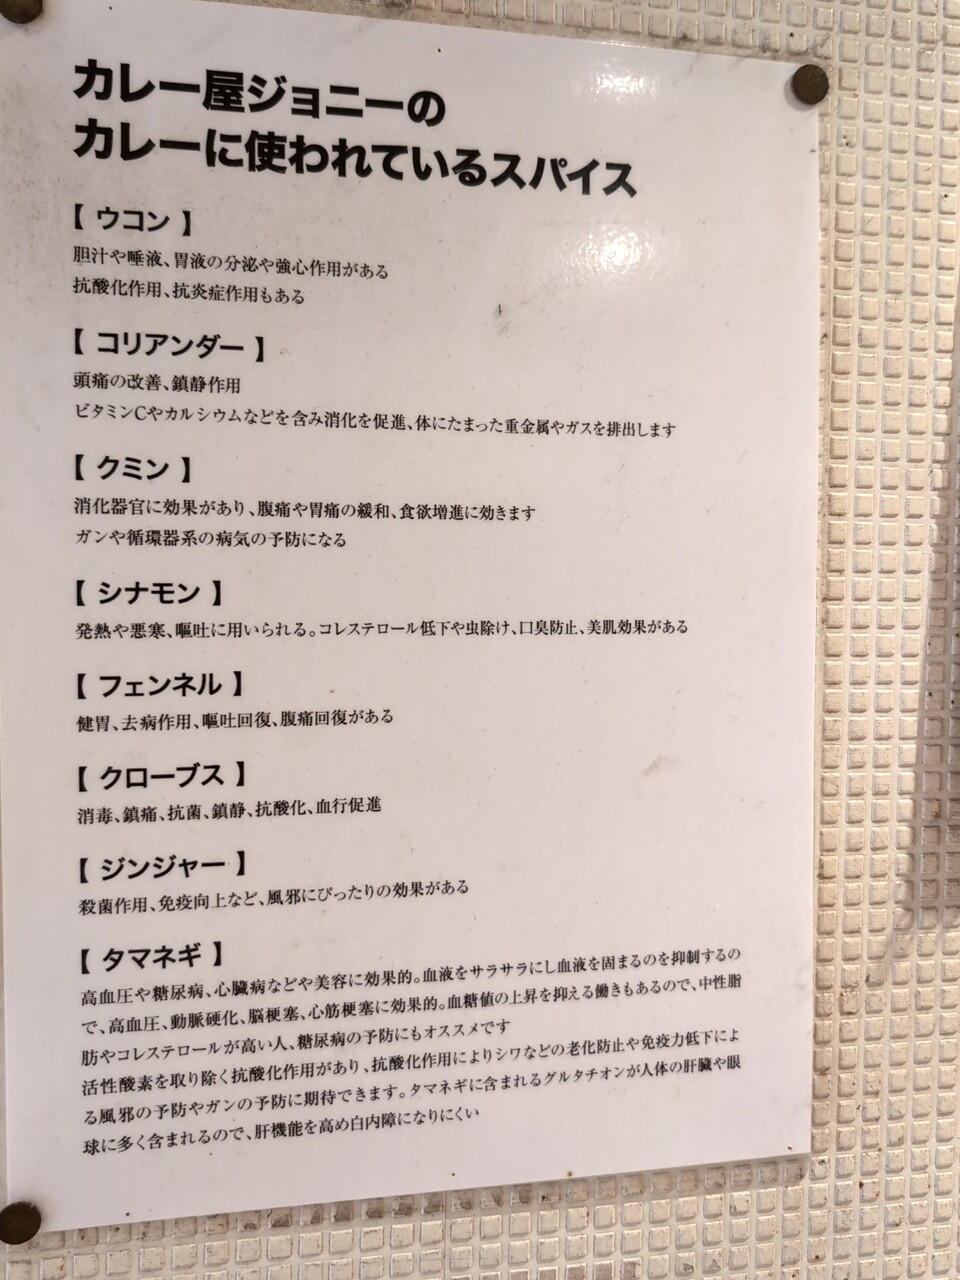 カレー屋ジョニーの
カレーに使われているスパイス
【 ウコン 】
胆汁や唾液、胃液の分泌や強心作用がある
抗酸化作用、抗炎症作用もある
【 コリアンダー 】
頭痛の改善、鎮静作用
ビタミンCやカルシウムなどを含み消化を促進、体にたまった重金属やガスを排出します
【 クミン 】
消化器官に効果があり、腹痛や胃痛の緩和、食欲増進に効きます
ガンや循環器系の病気の予防になる
【 シナモン 】
発熱や悪寒、嘔吐に用いられる。コレステロール低下や虫除け、口臭防止、美肌効果がある
【 フェンネル 】
健胃、去病作用、嘔吐回復、腹痛回復がある
【 クローブス 】
消毒、鎮痛、抗菌、鎮静、抗酸化、血行促進
【 ジンジャー 】
殺菌作用、免疫向上など、風邪にぴったりの効果がある
【 タマネギ 】
高血圧や糖尿病、心臓病などや美容に効果的。血液をサラサラにし血液を固まるのを抑制するの
で、高血圧、動脈硬化、脳梗塞、心筋梗塞に効果的。血糖値の上昇を抑える働きもあるので、中性脂
肪やコレステロールが高い人、糖尿病の予防にもオススメです
活性酸素を取り除く抗酸化作用があり、抗酸化作用によりシワなどの老化防止や免疫力低下によ
る風邪の予防やガンの予防に期待できます。タマネギに含まれるグルタチオンが人体の肝臓や眼
球に多く含まれるので、肝機能を高め白内障になりにくい